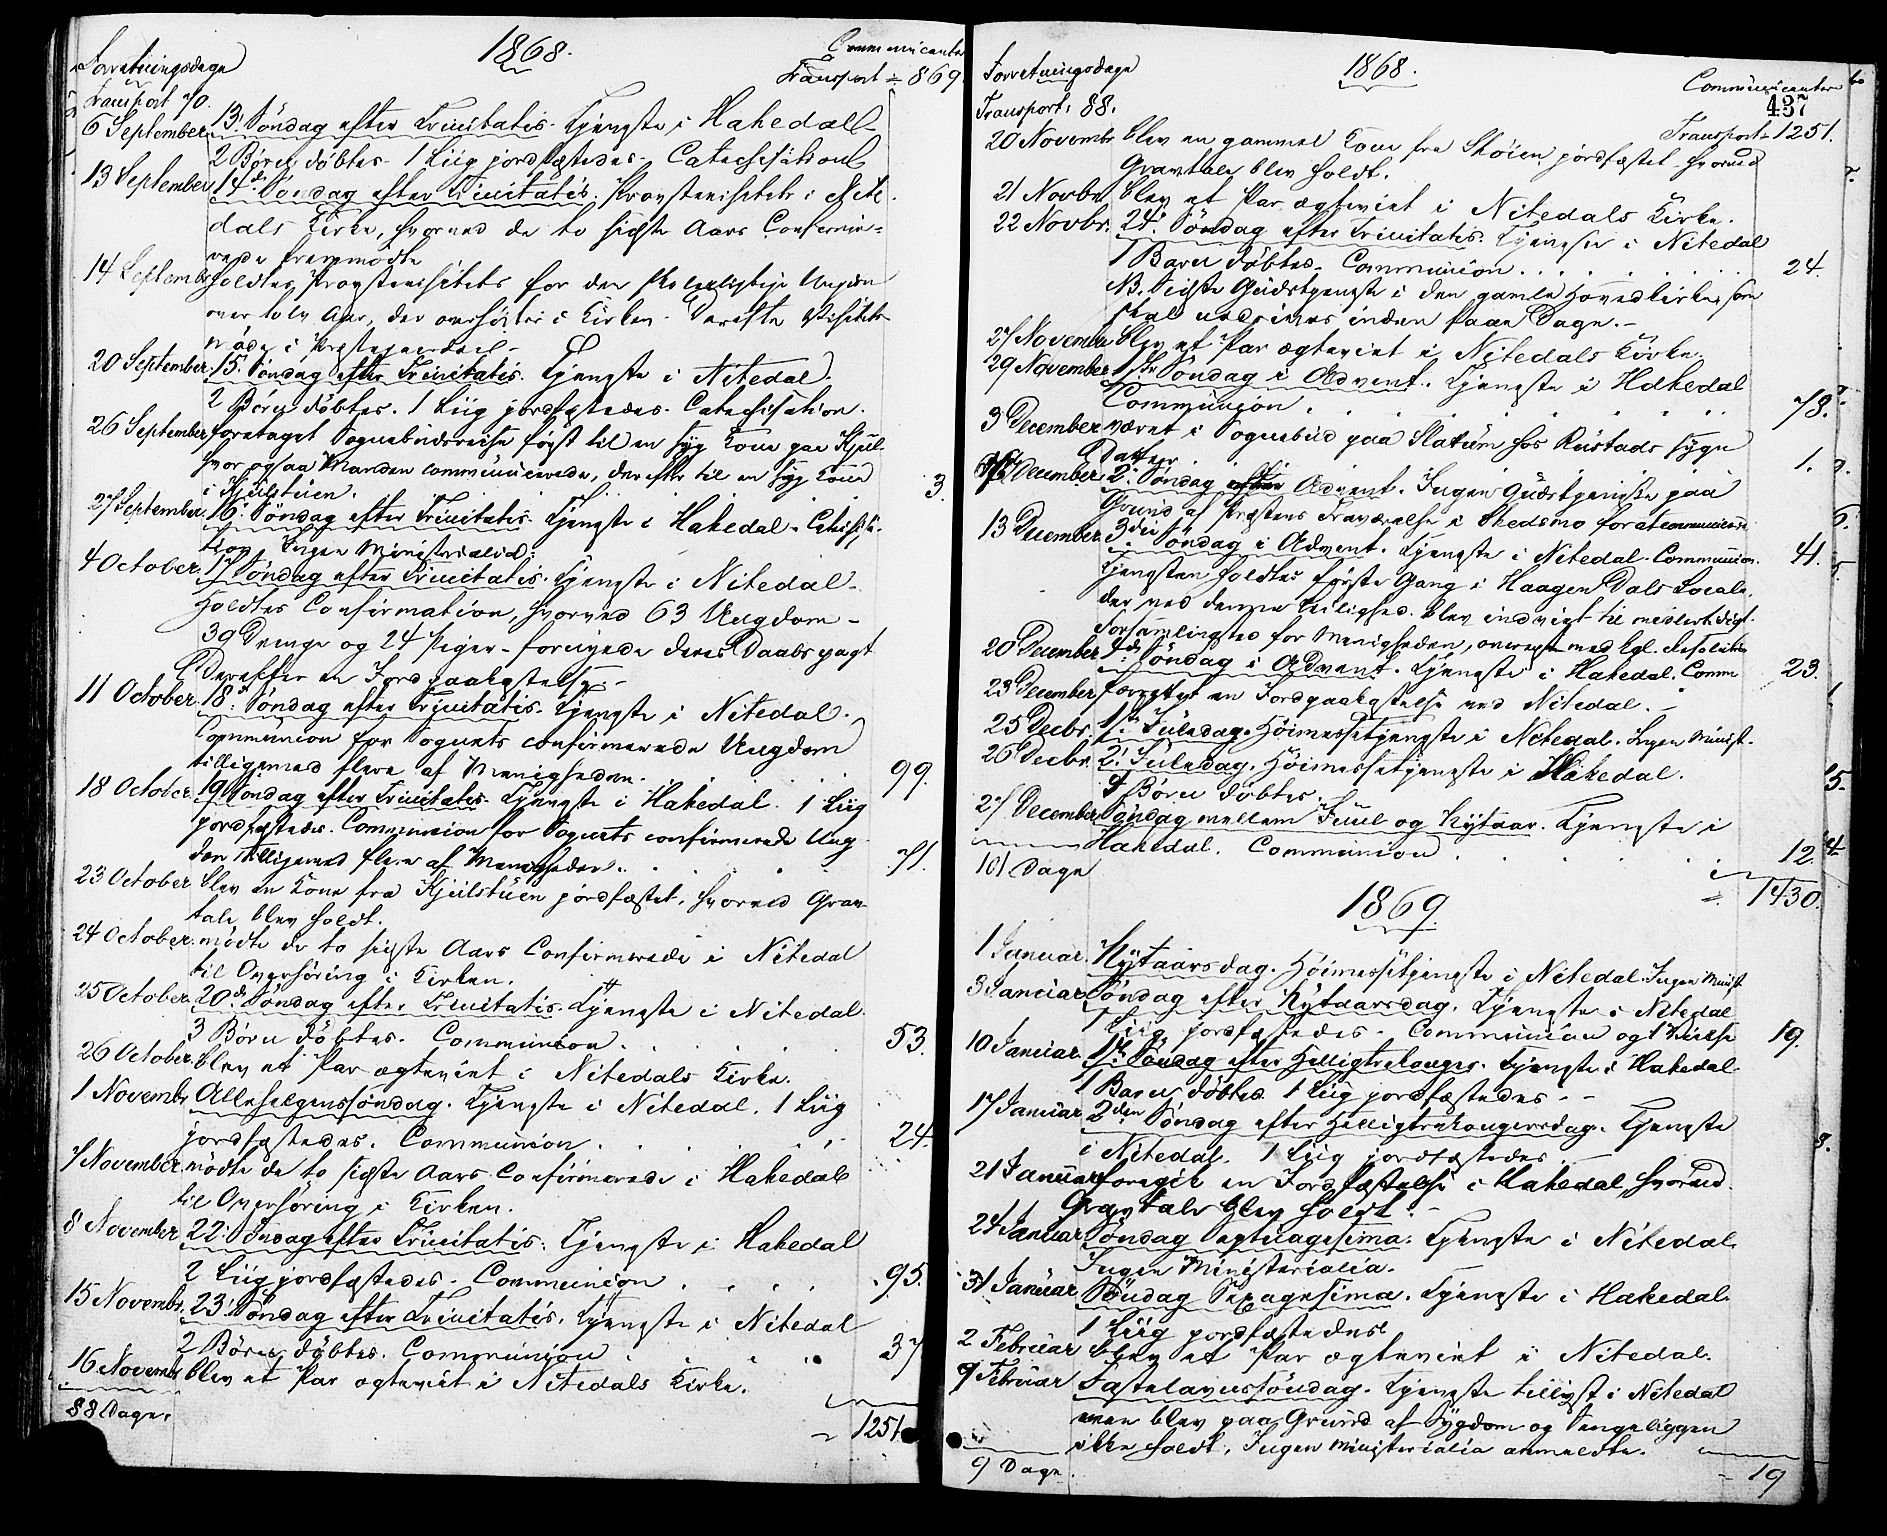 1868.
Forretningsdage
Communicanter
Transport 70.
Transport = 869
6 September 13. Søndag efter Trinitatis. Tjeneste i Hakedal
2 Børn døbtes. 1 Liig jordfæstedes. Catechisation
13 September 14de Søndag efter Trinitatis. Provstevisitats i Nite-
dals Kirke, hvorved de to sidste Aars Confirme-
rede fremmødte
14 September holdtes Provstevisitats for den skolepligtige Ungdom
over tolv Aar, der overhørtes i Kirken. Derefter Visitats-
møde i Præstegaarden.
20 September 15. Søndag efter Trinitatis. Tjeneste i Nitedal.
2 Børn døbtes. 1 Liig jordfæstedes. Catechisation.
26 September foretaget Sognebudsreise først til en syg Kone paa Kjul-
hvor ogsaa Manden communicerede, derefter til en syg Kone
i Kjulstuen. 3.
27 September 16. Søndag efter Trinitatis. Tjeneste i Hakedal. Catechisa-
tion. Ingen Ministerialia.
4 October 17. Søndag efter Trinitatis. Tjeneste i Nitedal.
Holdtes Confirmation, hvorved 63 Ungdom -
39 Drenge og 24 Piger - fornyede deres Daabspagt
Derefter en Jordpaakastelse. -
11 October 18. Søndag efter Trinitatis. Tjeneste i Nitedal.
Communion for Sognets confirmerede Ungdom
tilligemed flere af Menigheden. 99.
18 October 19. Søndag efter Trinitatis. Tjeneste i Hakedal. 1 Liig
jordfæstedes. Communion for Sognets confirmerede Ung-
dom tilligemed flere af Menigheden. 71.
23 October blev en Kone fra Kjulstuen jordfæstet, hvorved Grav-
tale blev holdt.
24 October mødte de to sidste Aars Confirmerede i Nitedal
til Overhøring i Kirken.
25 October 20de Søndag efter Trinitatis. Tjeneste i Nitedal.
3 Børn døbtes. Communion. 53.
26 October blev et Par ægteviet i Nitedals Kirke.
1 Novembr Allehelgenssøndag. Tjeneste i Nitedal. 1 Liig
jordfæstedes. Communion. 24.
7 November mødte de to sidste Aars Confirmerede i Hakedal
til Overhøring i Kirken.
8 November 22. Søndag efter Trinitatis. Tjeneste i Hakedal
2 Liig jordfæstedes. Communion. 95.
15 Novembr. 23. Søndag efter Trinitatis. Tjeneste i Nitedal
2 Børn døbtes. Communion. 37
16 Novembr blev et Par ægteviet i Nitedals Kirke.
88 Dage.
1251
1868.
Forretningsdage
Communicanter
437
Transport. 88.
Transport = 1251.
20 Novembr blev en gammel Kone fra Skøien jordfæstet, hvorved
Gravtale blev holdt.
21 Novbr blev et Par ægteviet i Nitedals Kirke.
22 Novbr. 24. Søndag efter Trinitatis. Tjeneste i Nitedal
1 Barn døbtes. Communion. 24.
NB. Sidste Gudstjeneste i den gamle Hovedkirke, som
skal nedrives inden faae Dage. -
27 November blev et Par ægteviet i Nitedals Kirke.
29 November 1ste Søndag i Advent. Tjeneste i Hakedal
Communion. 78.
3 December været i Sognebud paa Slatum hos Rustads syge
Datter. 1.
6 December 2. Søndag i Advent. Ingen Gudstjeneste paa
Grund af Præstens Fraværelse i Skedsmo for at communicere.
13 December 3die Søndag i Advent. Tjeneste i Nitedal. Communion. 41.
Tjenesten holdtes første Gang i Haagen Dals Locale,
der ved denne Leilighed blev indviet til midlertidigt
Forsamlingsted for Menigheden, overensst. med kgl. Resolution
20 December 4de Søndag i Advent. Tjeneste i Hakedal. Comm 23.
23 December forrettet en Jordpaakastelse ved Nitedal. -
25 Decbr. 1ste Juledag. Høimessetjeneste i Nitedal. Ingen Minist.
26 Decbr. 2. Juledag. Høimessetjeneste i Hakedal.
Børn døbtes.
27 December Søndag mellem Juul og Nytaar. Tjeneste i
Hakedal. Communion 12.
101 Dage
= 1430.
1869
1 Januar. Nytaarsdag. Høimessetjeneste i Nitedal. Ingen Minist
3 Januar Søndag efter Nytaarsdag. Tjeneste i Nitedal
1 Liig jordfæstedes. Communion og 19.
10 Januar 1ste Søndag efter Helligtrekonger. Tjeneste i Hakedal.
1 Barn døbtes. 1 Liig jordfæstedes. -
17 Januar 2den Søndag efter Helligtrekongersdag. Tjeneste
i Nitedal. 1 Liig jordfæstedes.
21 Januar foregik en Jordfæstelse i Hakedal, hvorved
Gravtale blev holdt. -
24 Januar Søndag Septuagesima. Tjeneste i Nitedal.
Ingen Ministerialia.
31 Januar Søndag Sexagesima. Tjeneste i Hakedal.
1 Liig jordfæstedes
2 Februar blev et Par ægteviet i Nitedal.
7 Februar Fastelavnssøndag. Tjeneste tillyst i Nitedal
men blev paa Grund af Sygdom og Sengeliggen
ikke holdt. Ingen Ministerialia anmeldte.
9 Dage.
19